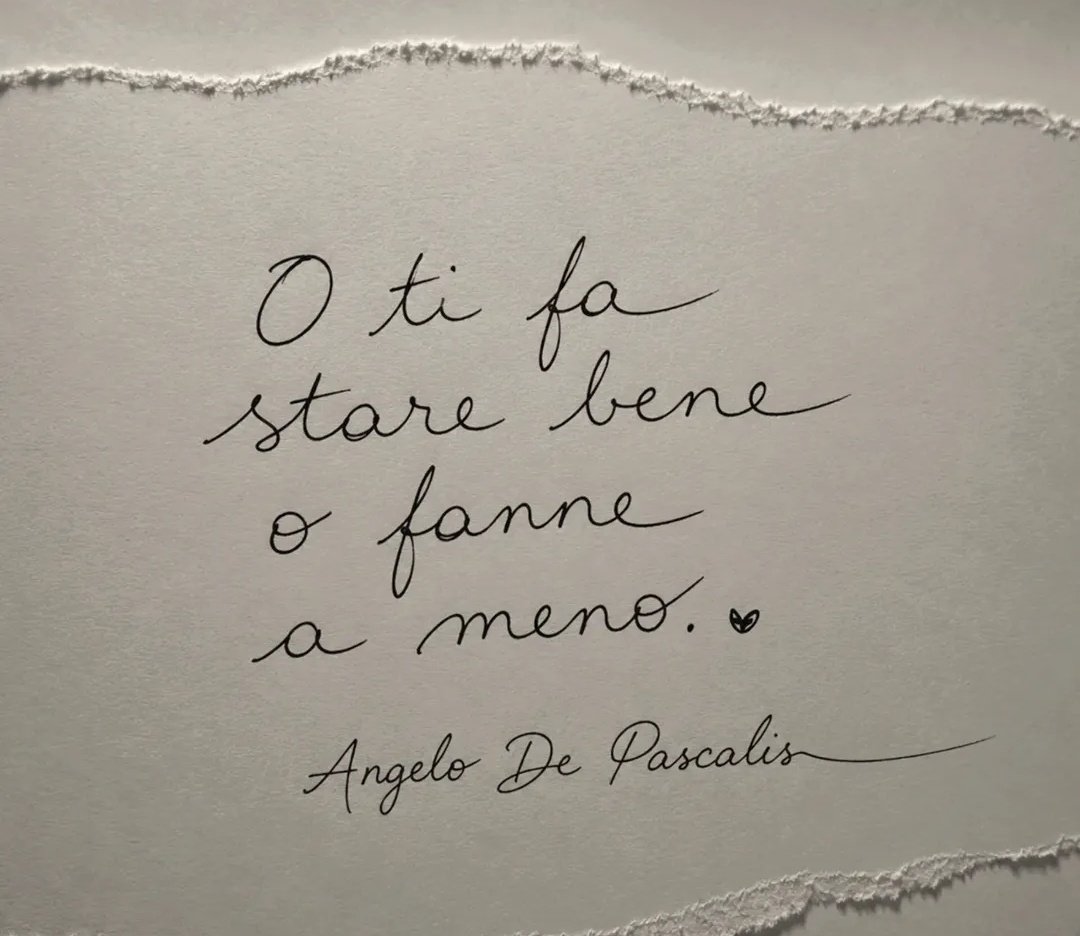 O ti fa
stare bene
o fanne
a meno.
Angelo De Pascalis